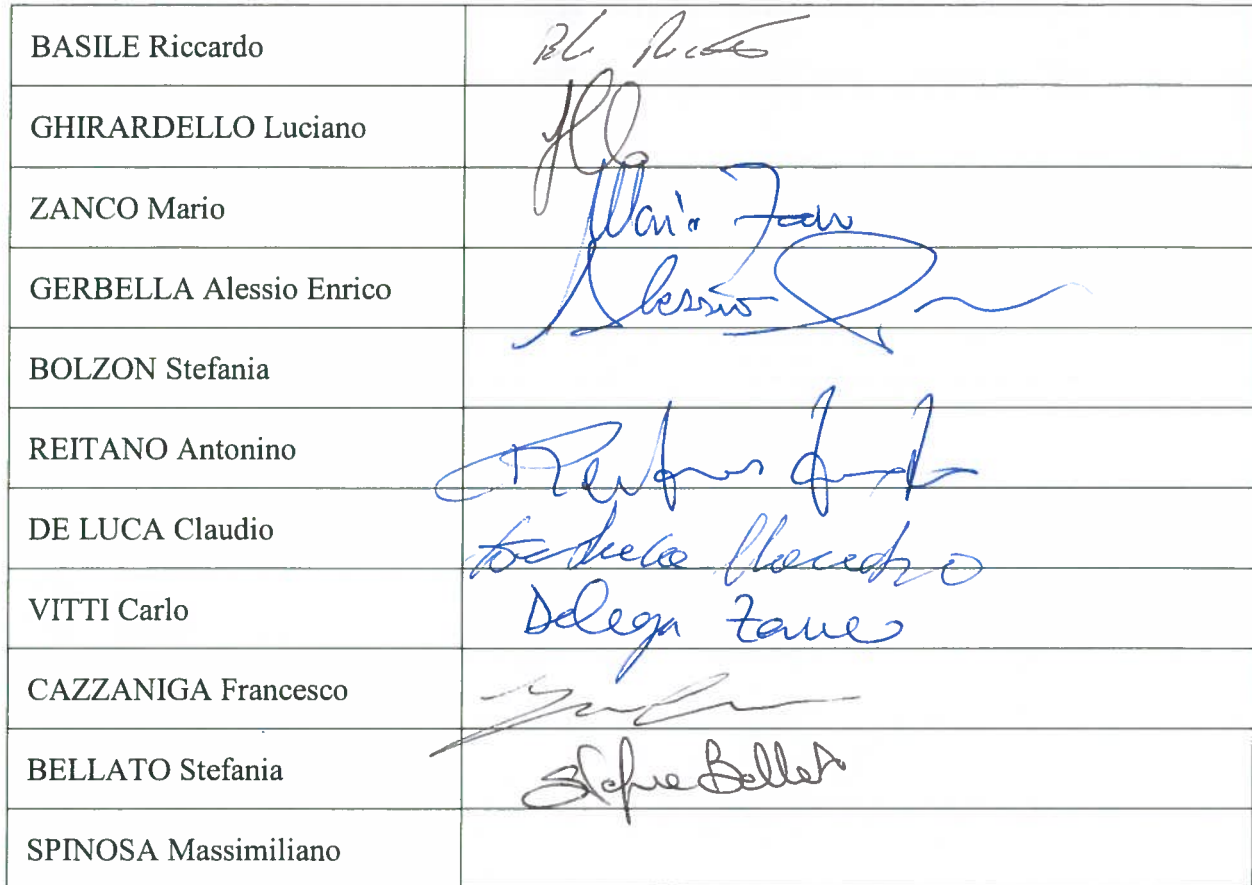 BASILE Riccardo
GHIRARDELLO Luciano
ZANCO Mario Mario
GERBELLA Alessio Enrico Alessio
BOLZON Stefania
REITANO Antonino
DE LUCA Claudio
VITTI Carlo Delega Zanco
CAZZANIGA Francesco
BELLATO Stefania Bellato
SPINOSA Massimiliano